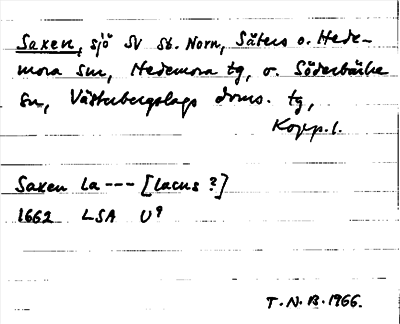 Saxen, sjö SV St. Norn, Säters o. Hede-
mora snr, Hedemora tg, o. Söderbärke
sn, Västerbergslags doms. tg,
Kopp. l.
Saxen La --- [lacus ?]
1662 LSA U9
T.N.B. 1966.